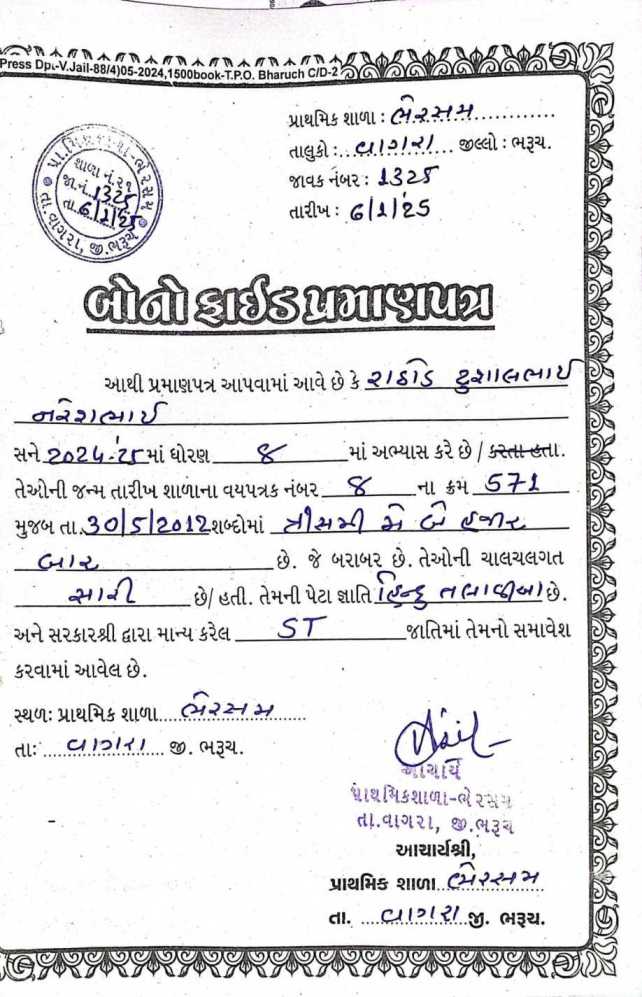 Press Dpt.-V.Jail-88/4)05-2024,1500book-T.P.O. Bharuch C/D-2
પ્રાથમિક શાળા : ભેરસમ
તાલુકો : વાગરા જીલ્લો : ભરૂચ.
જાવક નંબર : 1325
તારીખ : 6/1/25
પ્રા.મિશ્રશાળા-ભેરસમ
શાળા નં. ૨૧
જા.નં. 1325
તા. 6/1/25
તા. વાગરા, જી. ભરૂચ
બોનોફાઈડ પ્રમાણપત્ર
આથી પ્રમાણપત્ર આપવામાં આવે છે કે રાઠોડ ટુશાલભાઈ
નરેશભાઈ
સને 2024-25 માં ધોરણ ૪ માં અભ્યાસ કરે છે / કરતા હતા.
તેઓની જન્મ તારીખ શાળાના વયપત્રક નંબર ૪ ના ક્રમ 571
મુજબ તા. 30/5/2012 શબ્દોમાં ત્રીસમી મે બે હજાર
બાર છે. જે બરાબર છે. તેઓની ચાલચલગત
સારી છે/ હતી. તેમની પેટા જ્ઞાતિ હિન્દુ તલાવીઆ છે.
અને સરકારશ્રી દ્વારા માન્ય કરેલ ST જાતિમાં તેમનો સમાવેશ
કરવામાં આવેલ છે.
સ્થળ: પ્રાથમિક શાળા ભેરસમ
તા: વાગરા જી. ભરૂચ.
આચાર્ય
પ્રાથમિકશાળા-ભેરસમ
તા.વાગરા, જી.ભરૂચ
આચાર્યશ્રી,
પ્રાથમિક શાળા ભેરસમ
તા. વાગરા જી. ભરૂચ.